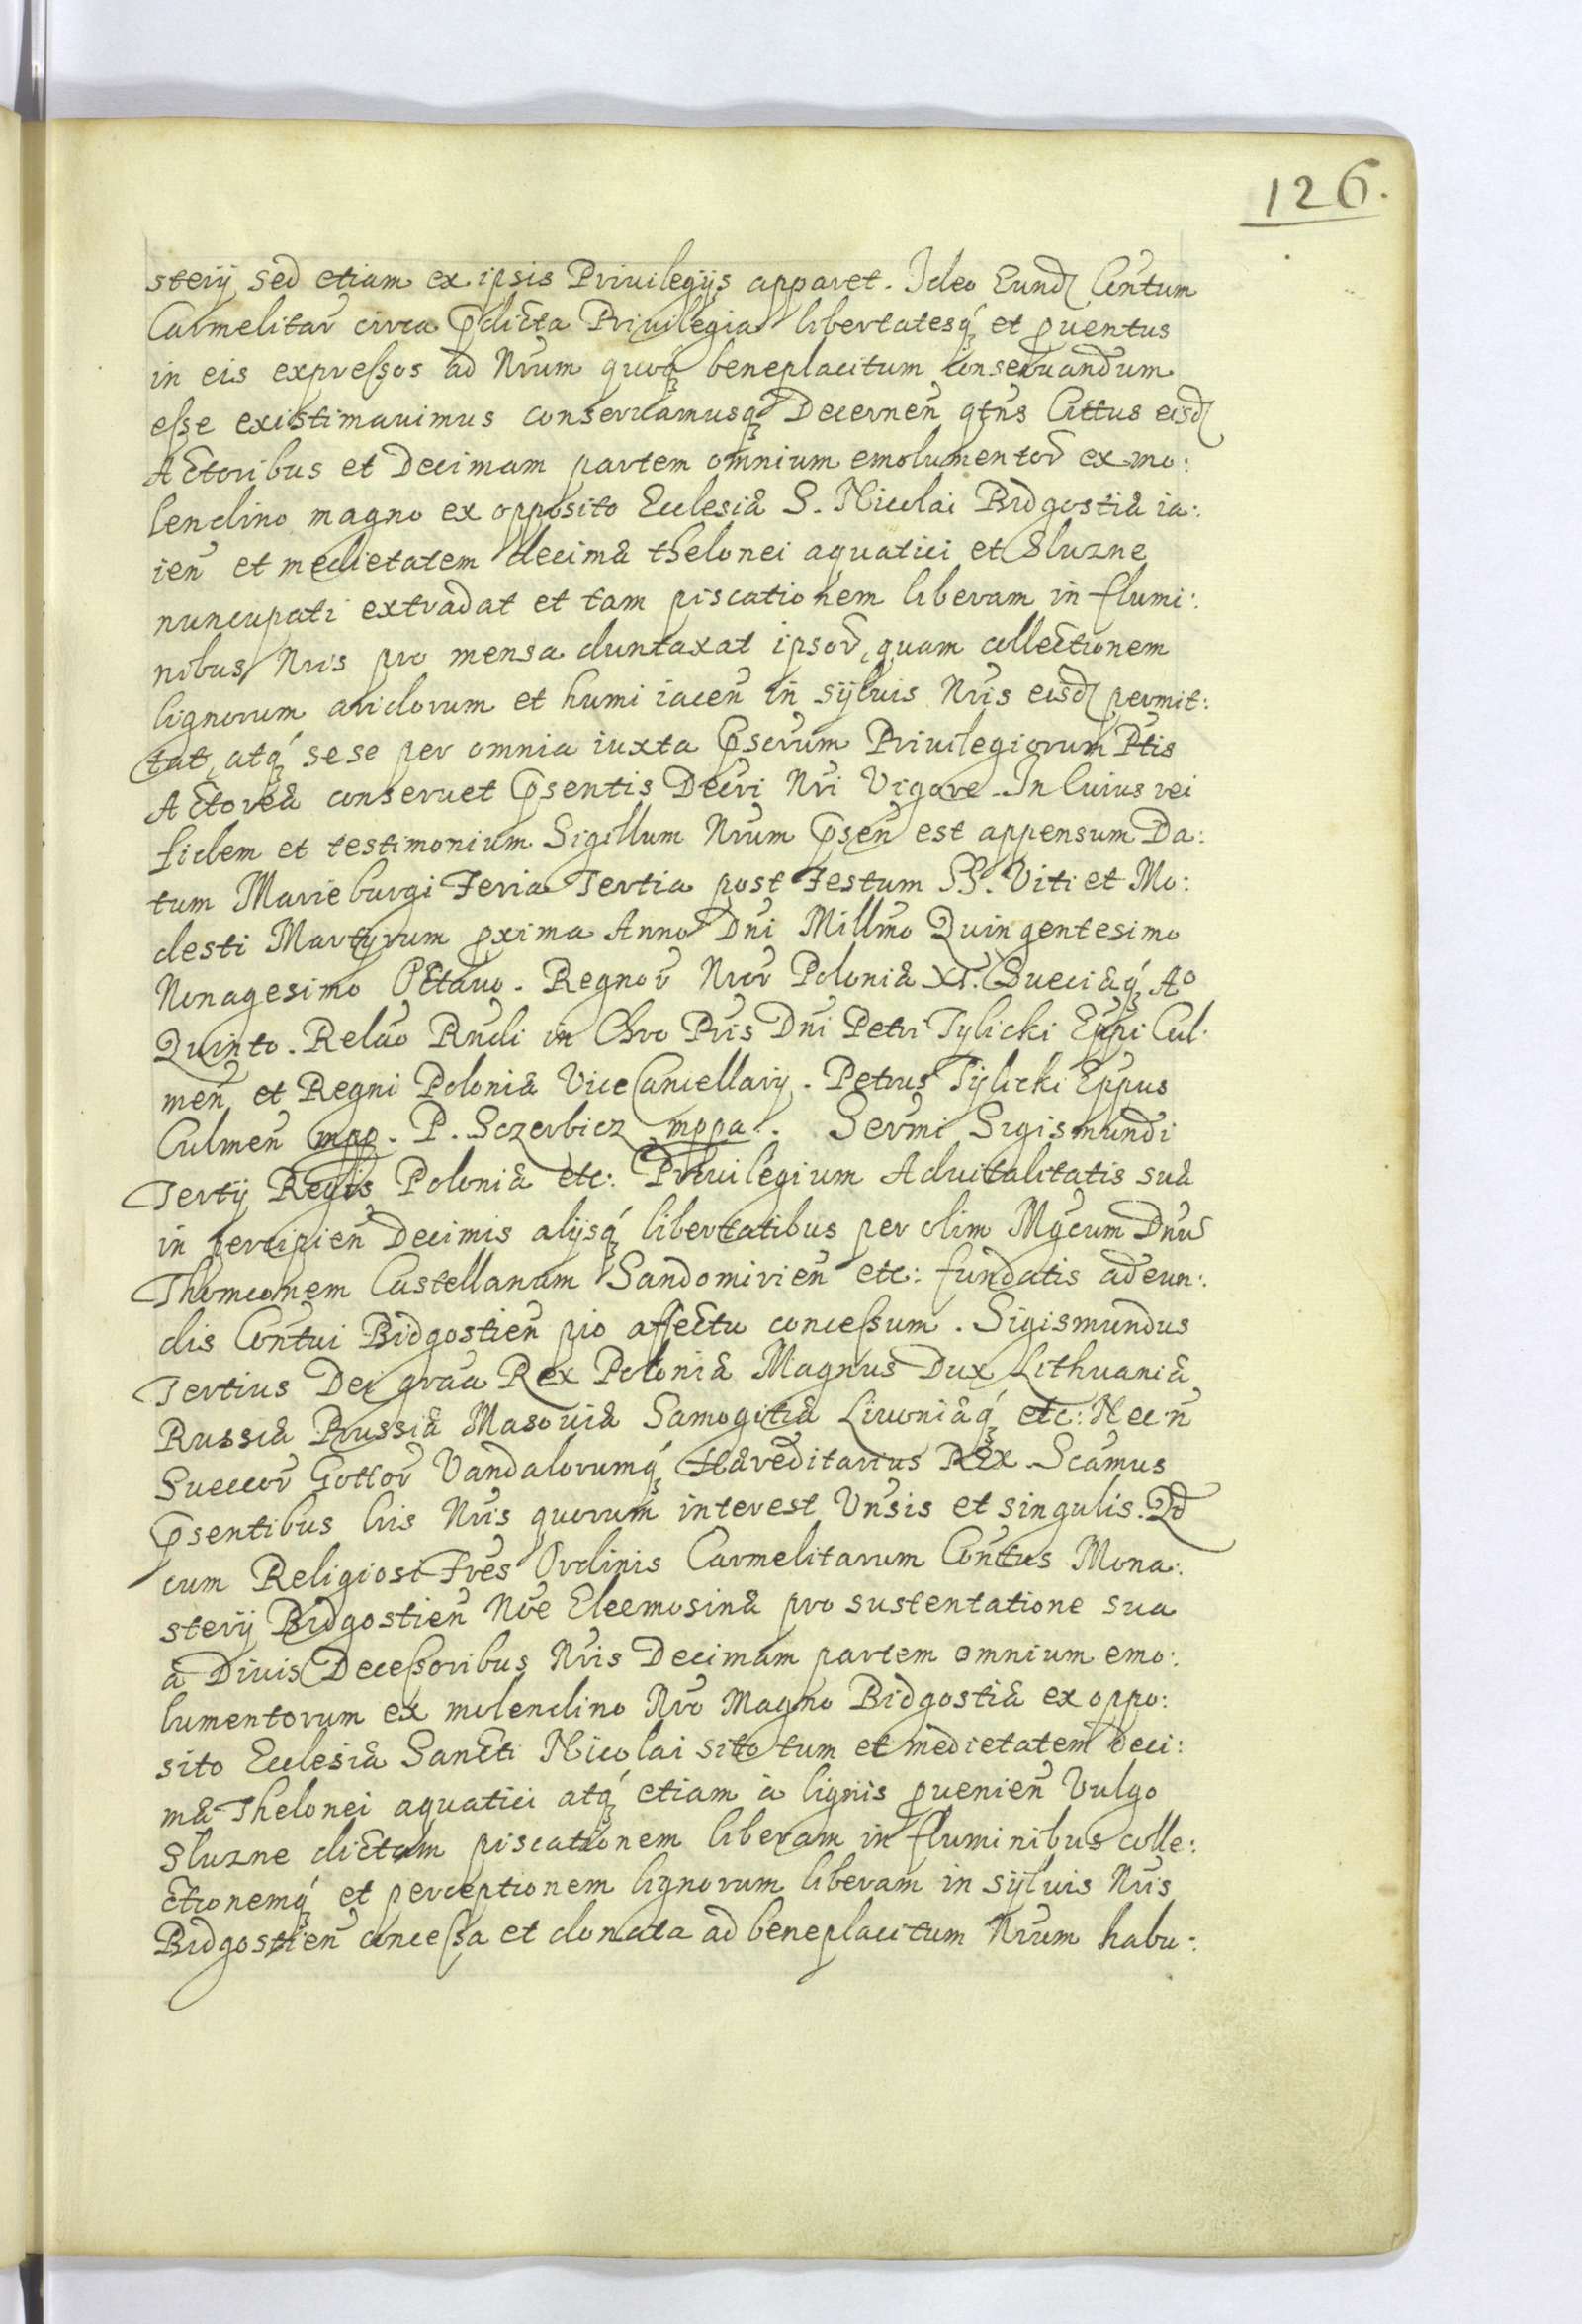 126.
sterij sed etiam ex ipsis Priuilegijs apparet. Ideo Eund Cõntum
Carmelitar̃ circa p̃dicta Priuilegia libertatesq́ꝫ et ꝓuentus
in eis expreſsos ad Nr̃um quoqꝫ beneplacitum conseruandum
eſse existimauimus conseruamusqꝫ Decernen̄ qtn̄s Cittus eisd
Actoribus et Decimam partem omnium emolumentor̃ ex mo:
lendino magno ex opposito Ecclesiæ S. Nicolai Bidgostiæ ia:
ien̄ et medietatem decimæ thelonei aquatici et Sluzne
nuncupati extradat et tam piscationem liberam in flumi:
nibus Nr̃is pro mensa duntaxat ipsor̃, quam collectionem
lignorum aridorum et humi iacen̄ in syluis Nr̃is eisd permit:
tat, atq́ꝫ sese per omnia iuxta p̃scr̃um Priuilegiorum Ptis
Actoreæ conseruet p̃sentis Decr̃i Nr̃i Vigore. In Cuius rei
fidem et testimonium Sigillum Nr̃um p̃sen̄ est appensum Da:
tum Marieburgi Feria Tertia post Festum SS. Viti et Mo:
desti Martyrum ꝓxima Anno Dn̄i Millm̄o Quingentesimo
Nonagesimo Octauo. Regnor̃ Nr̃or̃ Poloniæ XI. Sueciæq́ꝫ Aº
Quinto. Relao Rn̄di in Chr̃o Pr̃is Dn̄i Petri Tylicki Ep̄pi Cul:
men̄ et Regni Poloniæ ViceCancellarij. Petrus Tylicki Ep̄pus
Culmen̄ mpp. P. Sczerbicz mppa. Serm̄i Sigismundi
Tertij Regis Poloniæ etc: Priuilegium Aduitalitatis suæ
in percipien̄ Decimis alijsq́ꝫ libertatibus per olim Mg̃cum Dnū
Thomconem Castellanum Sandomirien̄ etc: fundatis ad eun:
dis Cõntui Bidgostien̄ pio affectu conceſsum. Sigismundus
Tertius Dei gra͠a Rex Poloniæ Magnus Dux Lithuaniæ
Russiæ Prussiæ Masouiæ Samogitiæ Liuoniæq́ꝫ etc: Necn̄
Sueccor̃ Gottor̃ Vandalorumq́ꝫ Hæreditarius REx. Sc͠amus
p̃sentibus lr̃is Nr̃is quorum interest Vn̄sis et singulis. Qd
cum Religiosi Fr̃es Ordinis Carmelitarum Cõntus Mona:
sterij Bidgostien̄ Nõe Eleemosinæ pro sustentatione sua
à Diuis Deceſsoribus Nr̃is Decimam partem omnium emo:
lumentorum ex molendino Nr̃o Magno Bidgostiæ ex oppo:
sito Ecclesiæ Sancti Nicolai sito tum et medietatem deci:
mæ Thelonei aquatici atq́ꝫ etiam à lignis ꝓuenien̄ Vulgo
Sluzne dictam piscationem liberam in fluminibus colle:
ctionemq́ꝫ et perceptionem lignorum liberam in syluis Nr̃is
Bidgostien̄ conceſsa et donata ad beneplacitum Nr̃um habu: